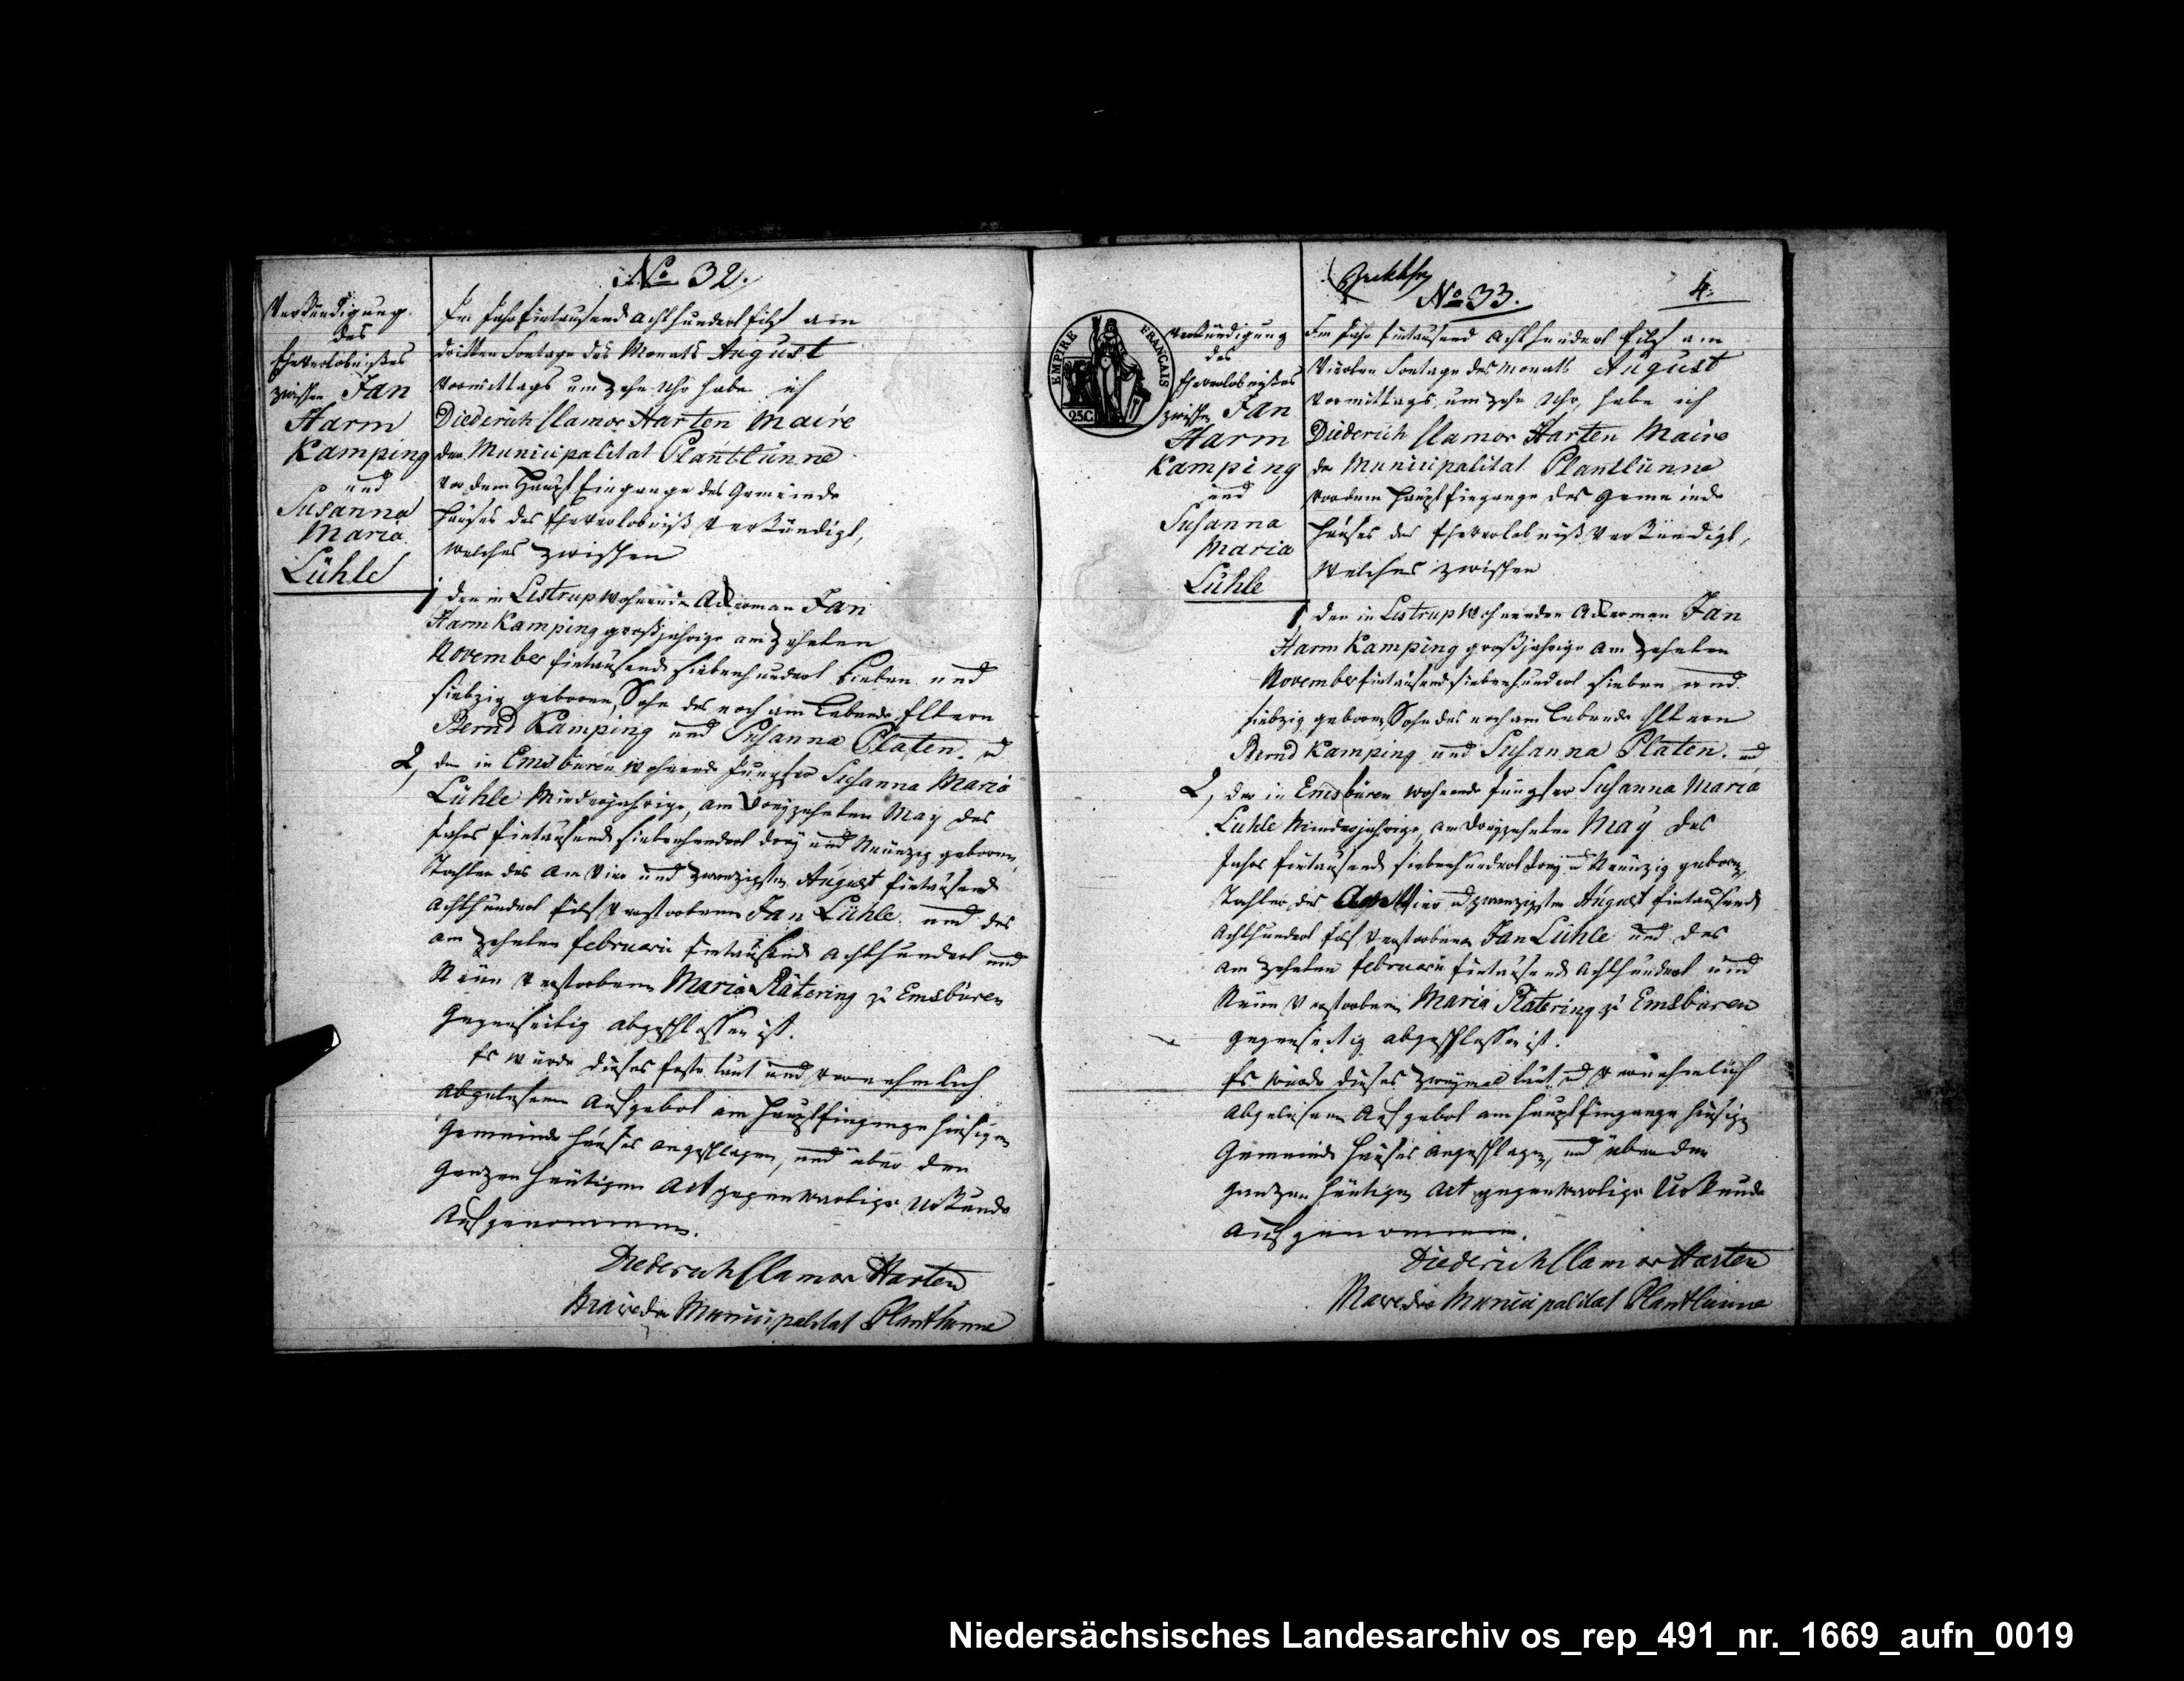 No 32.
Verkündigung
des
Eheverlobnißes
zwischen Jan
Harm
Kamping
und
Susanna
Maria
Lühle
Im Jahr Eintausend Achthundert Eilf am
dritten Sontage des Monats August
Vormittags um Zehn Uhr habe ich
Diederich Clamor Harten Maire
der Municipalitat Plantlünne
vor dem Haupt Eingange des Gemeinde
Hauses das Eheverlobniß Verkündigt,
welches zwischen
1, den in Listrup Wohnende Ackerman Jan
Harm Kamping großjahrige am Zehnten
November Eintausend siebenhundert Sieben und
siebzig geboren, Sohn des noch am Lebende Eltern
Bernd Kamping und Susanna Platen. und
2, der in Emsbüren wohnende Jungfer Susanna Maria
Lühle Minderjahrige, am Dreyzehnten May des
Jahrs Eintausend siebenhundert drey und Neünzig geboren,
Tochter des am Vier und zwanzigsten August Eintausend
Achthundert Eilf Verstorbenen Jan Lühle und des
am Zehnten februarii Eintausend Achthundert und
Neün Verstorbenen Maria Rätering zu Emsbüren
Gegenseitig abgeschlossen ist.
Es wurde dieses Erste laut und vernehmlich
Abgelesene Aufgebot am Haupt Eingange hiesigen
Gemeinde Hauses angeschlagen, und über den
Ganzen Heütigen Act gegenwartige Urkunde
Aufgenommen.
Diederich Clamor Harten
Maire der Municipalitat Plantlünne
No 33.
4.
EMPIRE FRANÇAIS
25C
Verkündigung
des
Eheverlobnißes
zwischen Jan
Harm
Kamping
und
Susanna
Maria
Lühle
Im Jahr Eintausend Achthundert Eilf am
Vierten Sontage des Monats August
Vormittags um Zehn Uhr, habe ich
Diederich Clamor Harten Maire
der Municipalitat Plantlünne
vor dem Haupt Eingange des Gemeinde
Hauses das Eheverlobniß Verkündigt,
Welches zwischen
1, den in Listrup Wohnenden Ackerman Jan
Harm Kamping großjahrige am Zehnten
November Eintausend siebenhundert sieben und
siebzig geboren, Sohn des noch am Lebende Eltern
Bernd Kamping und Susanna Platen. und
2, der in Emsbüren wohnende Jungfer Susanna Maria
Lühle Minderjahrige, am Dreyzehnten May des
Jahrs Eintausend siebenhundert drey und Neünzig geboren,
Tochter des Am Vier und zwanzigsten August Eintausend
Achthundert Eilf Verstorbenen Jan Lühle und des
am Zehnten februarii Eintausend Achthundert und
Neün Verstorbenen Maria Rätering zu Emsbüren
gegenseitig abgeschlossen ist.
Es wurde dieses Zweymal laut und vernehmlich
Abgelesene Aufgebot am Haupt Eingange hiesigen
Gemeinde Hauses angeschlagen, und über den
Ganzen Heütigen Act gegenwartige Urkunde
aufgenommen.
Diederich Clamor Harten
Maire der Municipalitat Plantlünne
Niedersächsisches Landesarchiv os_rep_491_nr._1669_aufn_0019